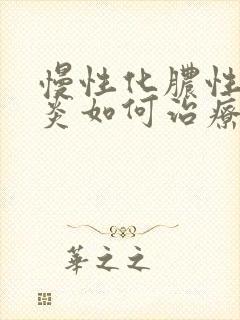 慢性化膿性
炎如何治療
華之之